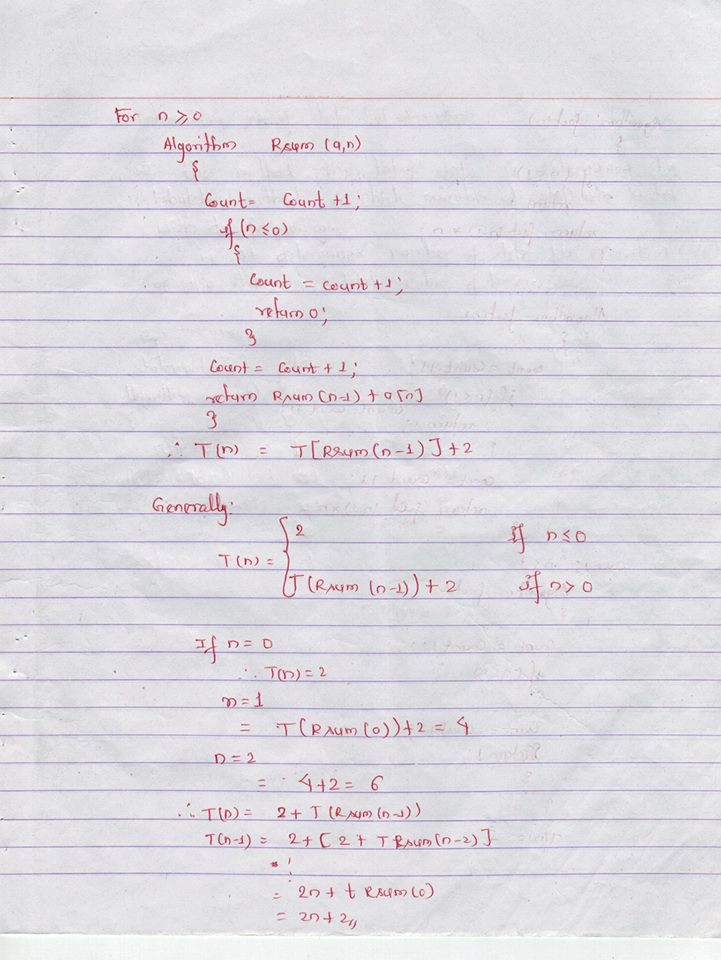 For n ≥ 0
Algorithm Rsum (a,n)
{
Count = Count +1;
if (n ≤ 0)
{
Count = count +1;
return 0;
}
Count = Count + 1;
return Rsum (n-1) + a[n]
}
∴ T(n) = T[Rsum(n-1)] + 2
Generally:
T(n) = { 2 If n ≤ 0
T(Rsum (n-1)) + 2 if n > 0
If n = 0
∴ T(n) = 2
n = 1
= T(Rsum(0)) + 2 = 4
n = 2
= 4+2 = 6
∴ T(n) = 2 + T(Rsum(n-1))
T(n-1) = 2 + [2 + T Rsum(n-2)]
= 2n + t Rsum(0)
= 2n + 2,,